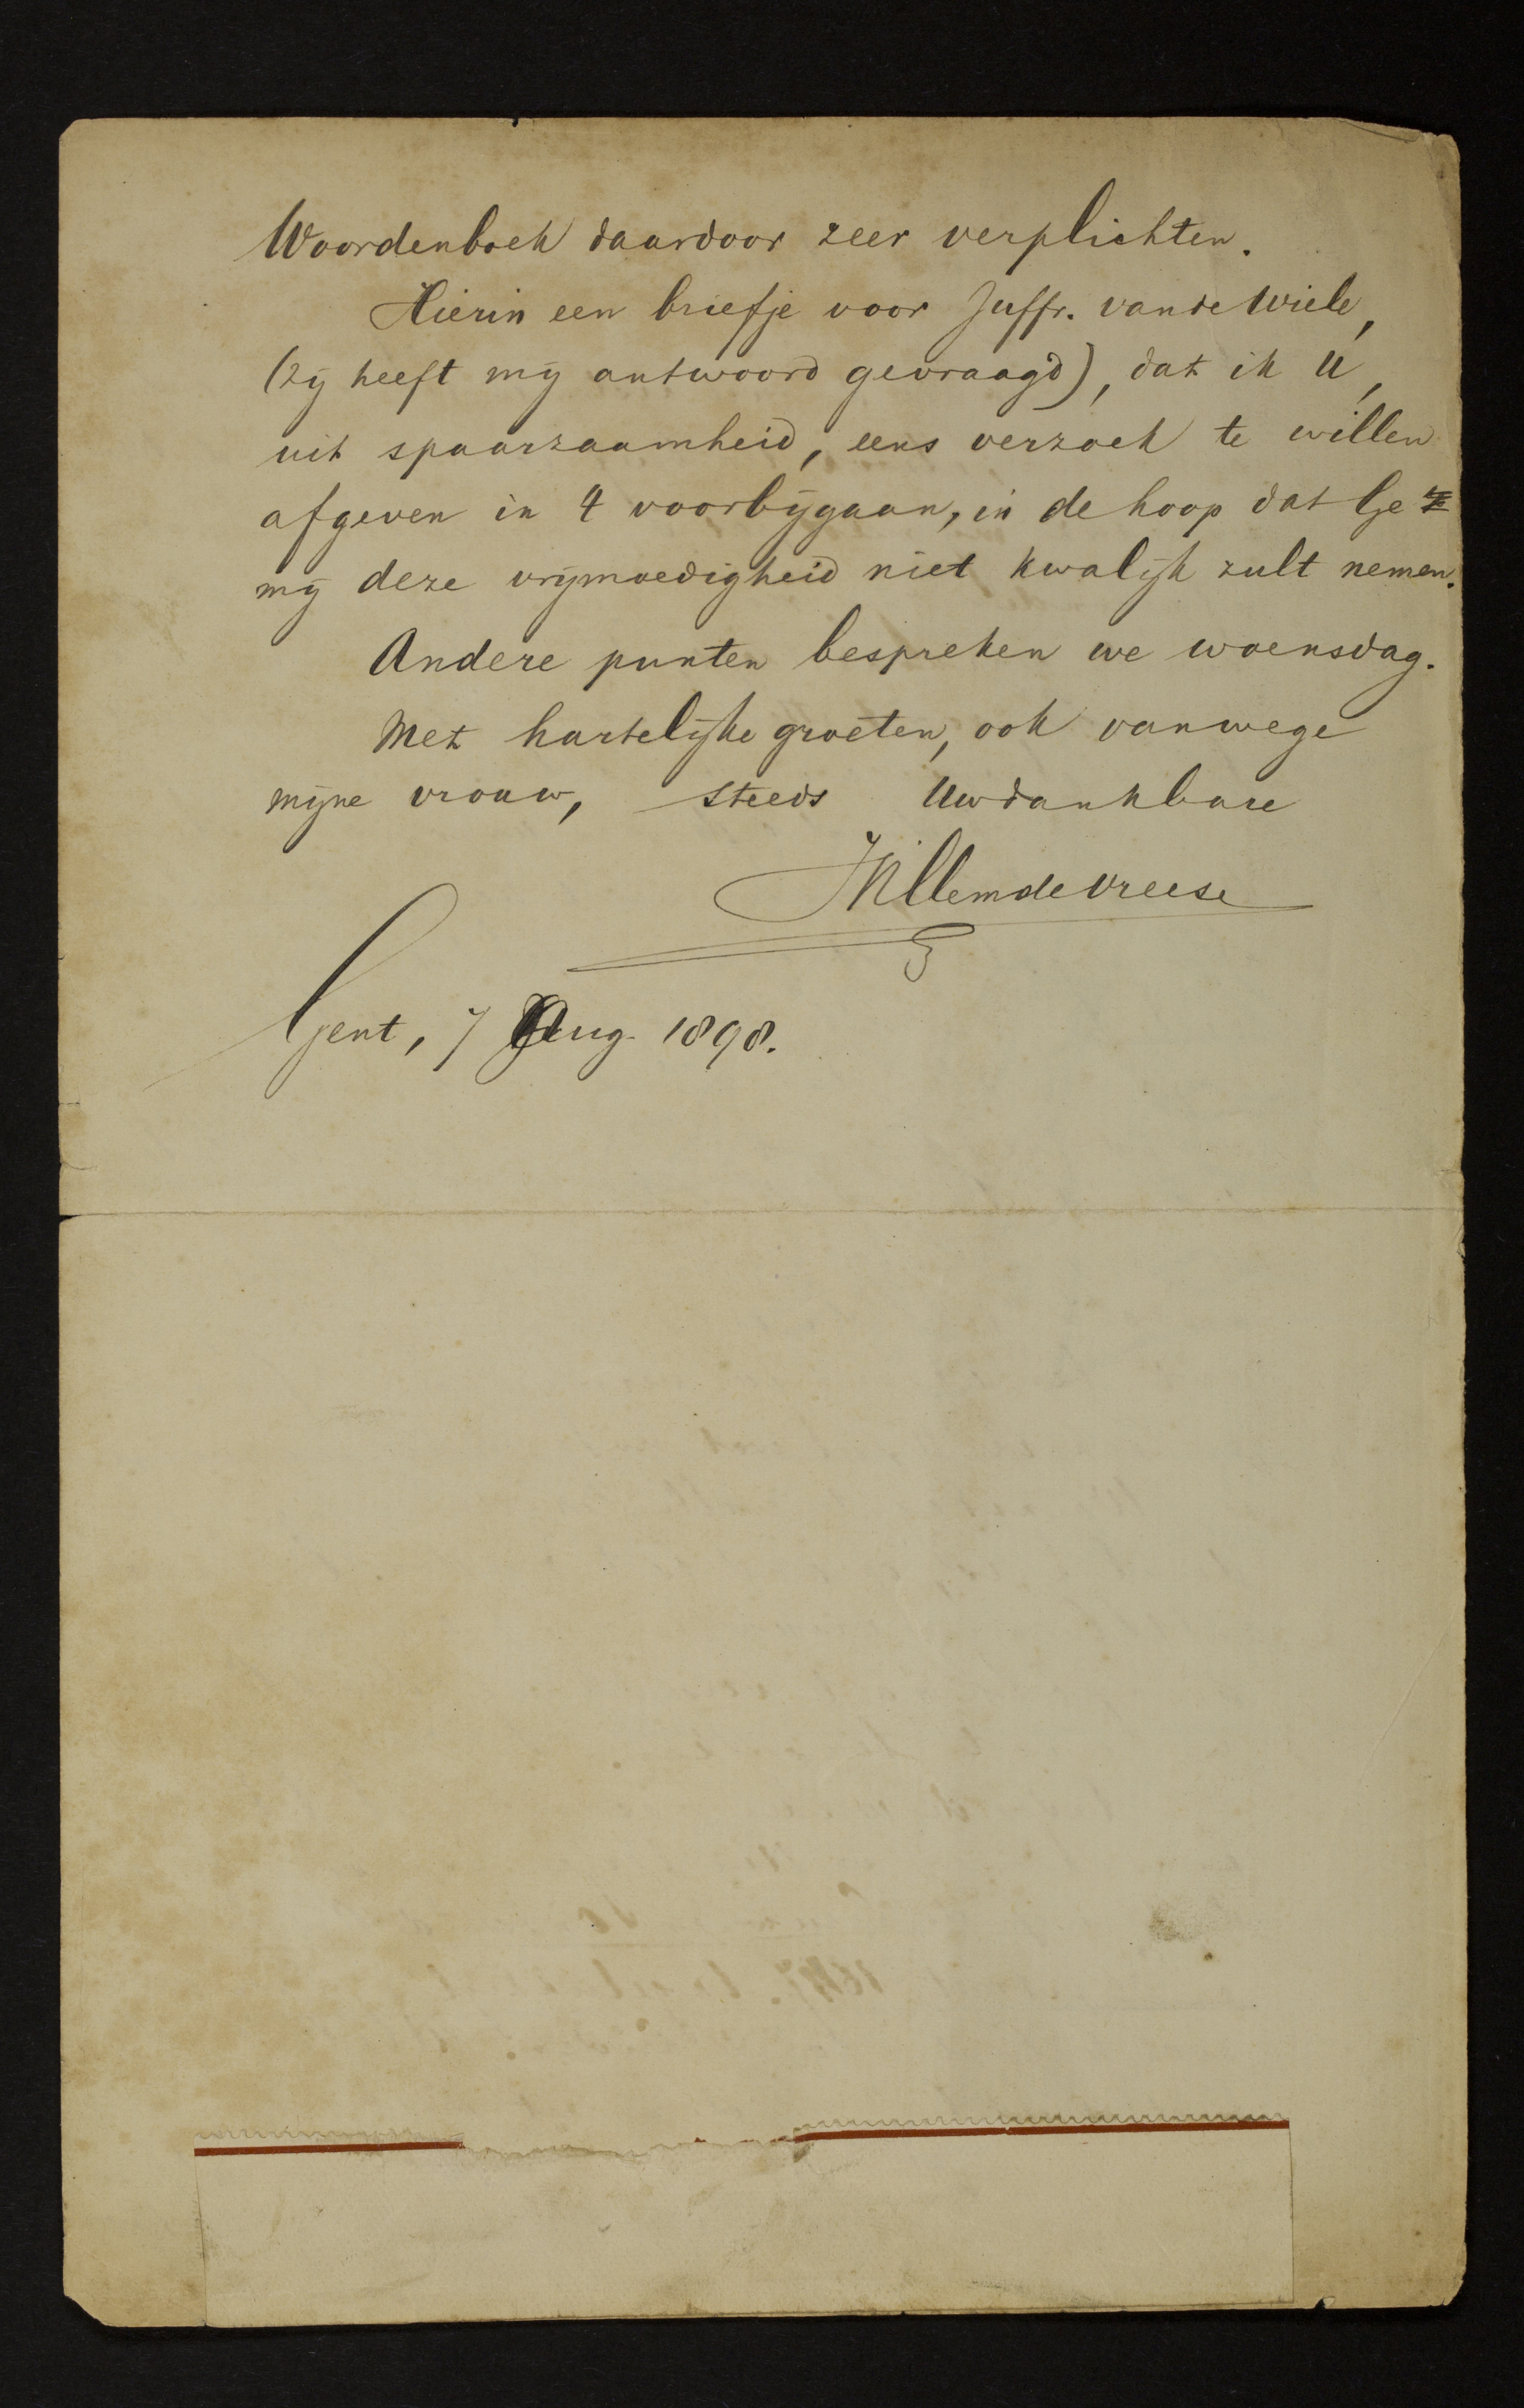 Woordenboek daardoor zeer verplichten.
Hierin een briefje voor Juffr. van de Wiele,
(zij heeft mij antwoord gevraagd), dat ik U,
uit spaarzaamheid, eens verzoek te willen
afgeven in 't voorbijgaan, in de hoop dat Ge
mij deze vrijmoedigheid niet kwalijk zult nemen.
Andere punten bespreken we woensdag.
Met hartelijke groeten, ook vanwege
mijne vrouw, steeds Uw dankbare
Willem de Vreese
Gent, 7 Aug. 1898.